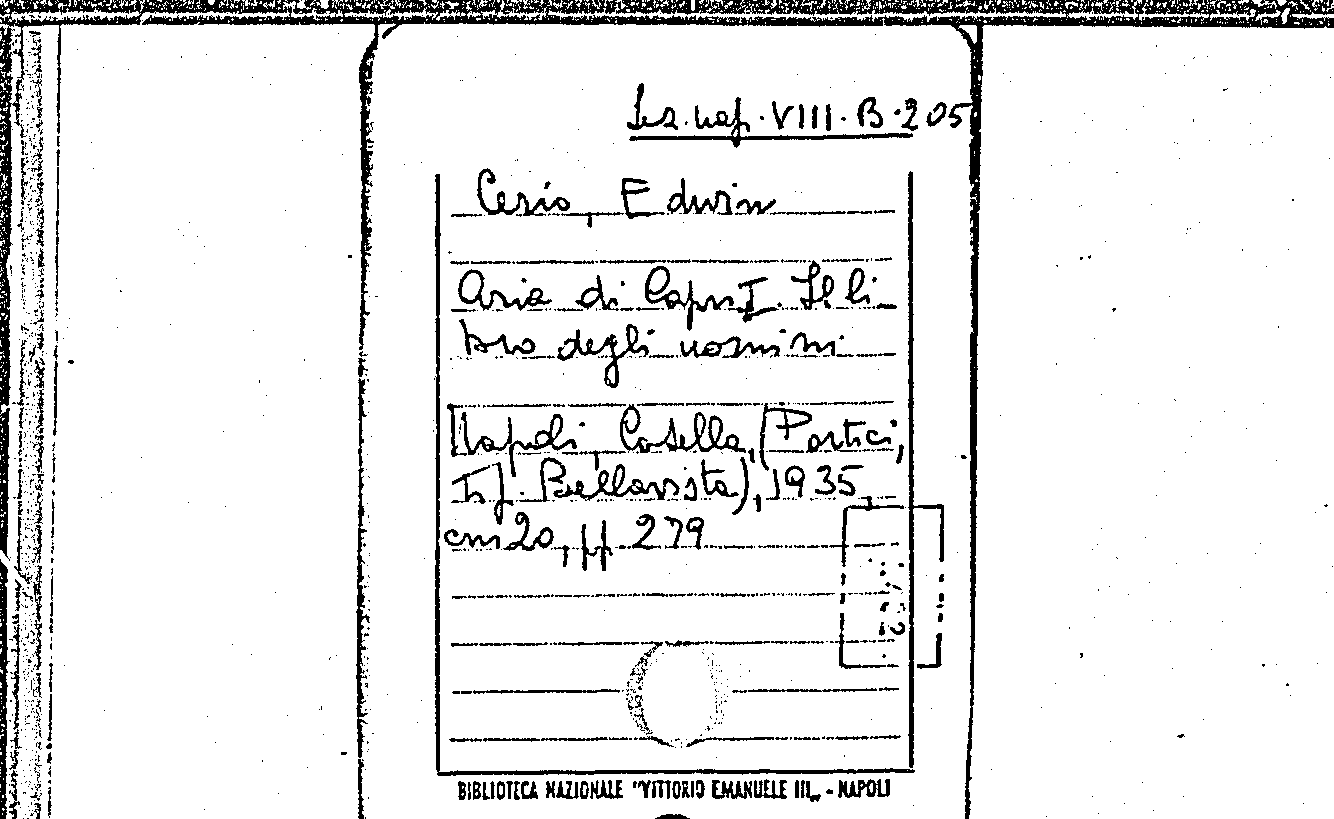 Sez. nap. VIII. B. 205
Cerio, Edwin
Aria di Capri I. Il li-
bro degli uomini
Napoli, Casella, (Portici,
Tip. Bellavista), 1935
cm 20, pp 279
BIBLIOTECA NAZIONALE "VITTORIO EMANUELE III„ - NAPOLI